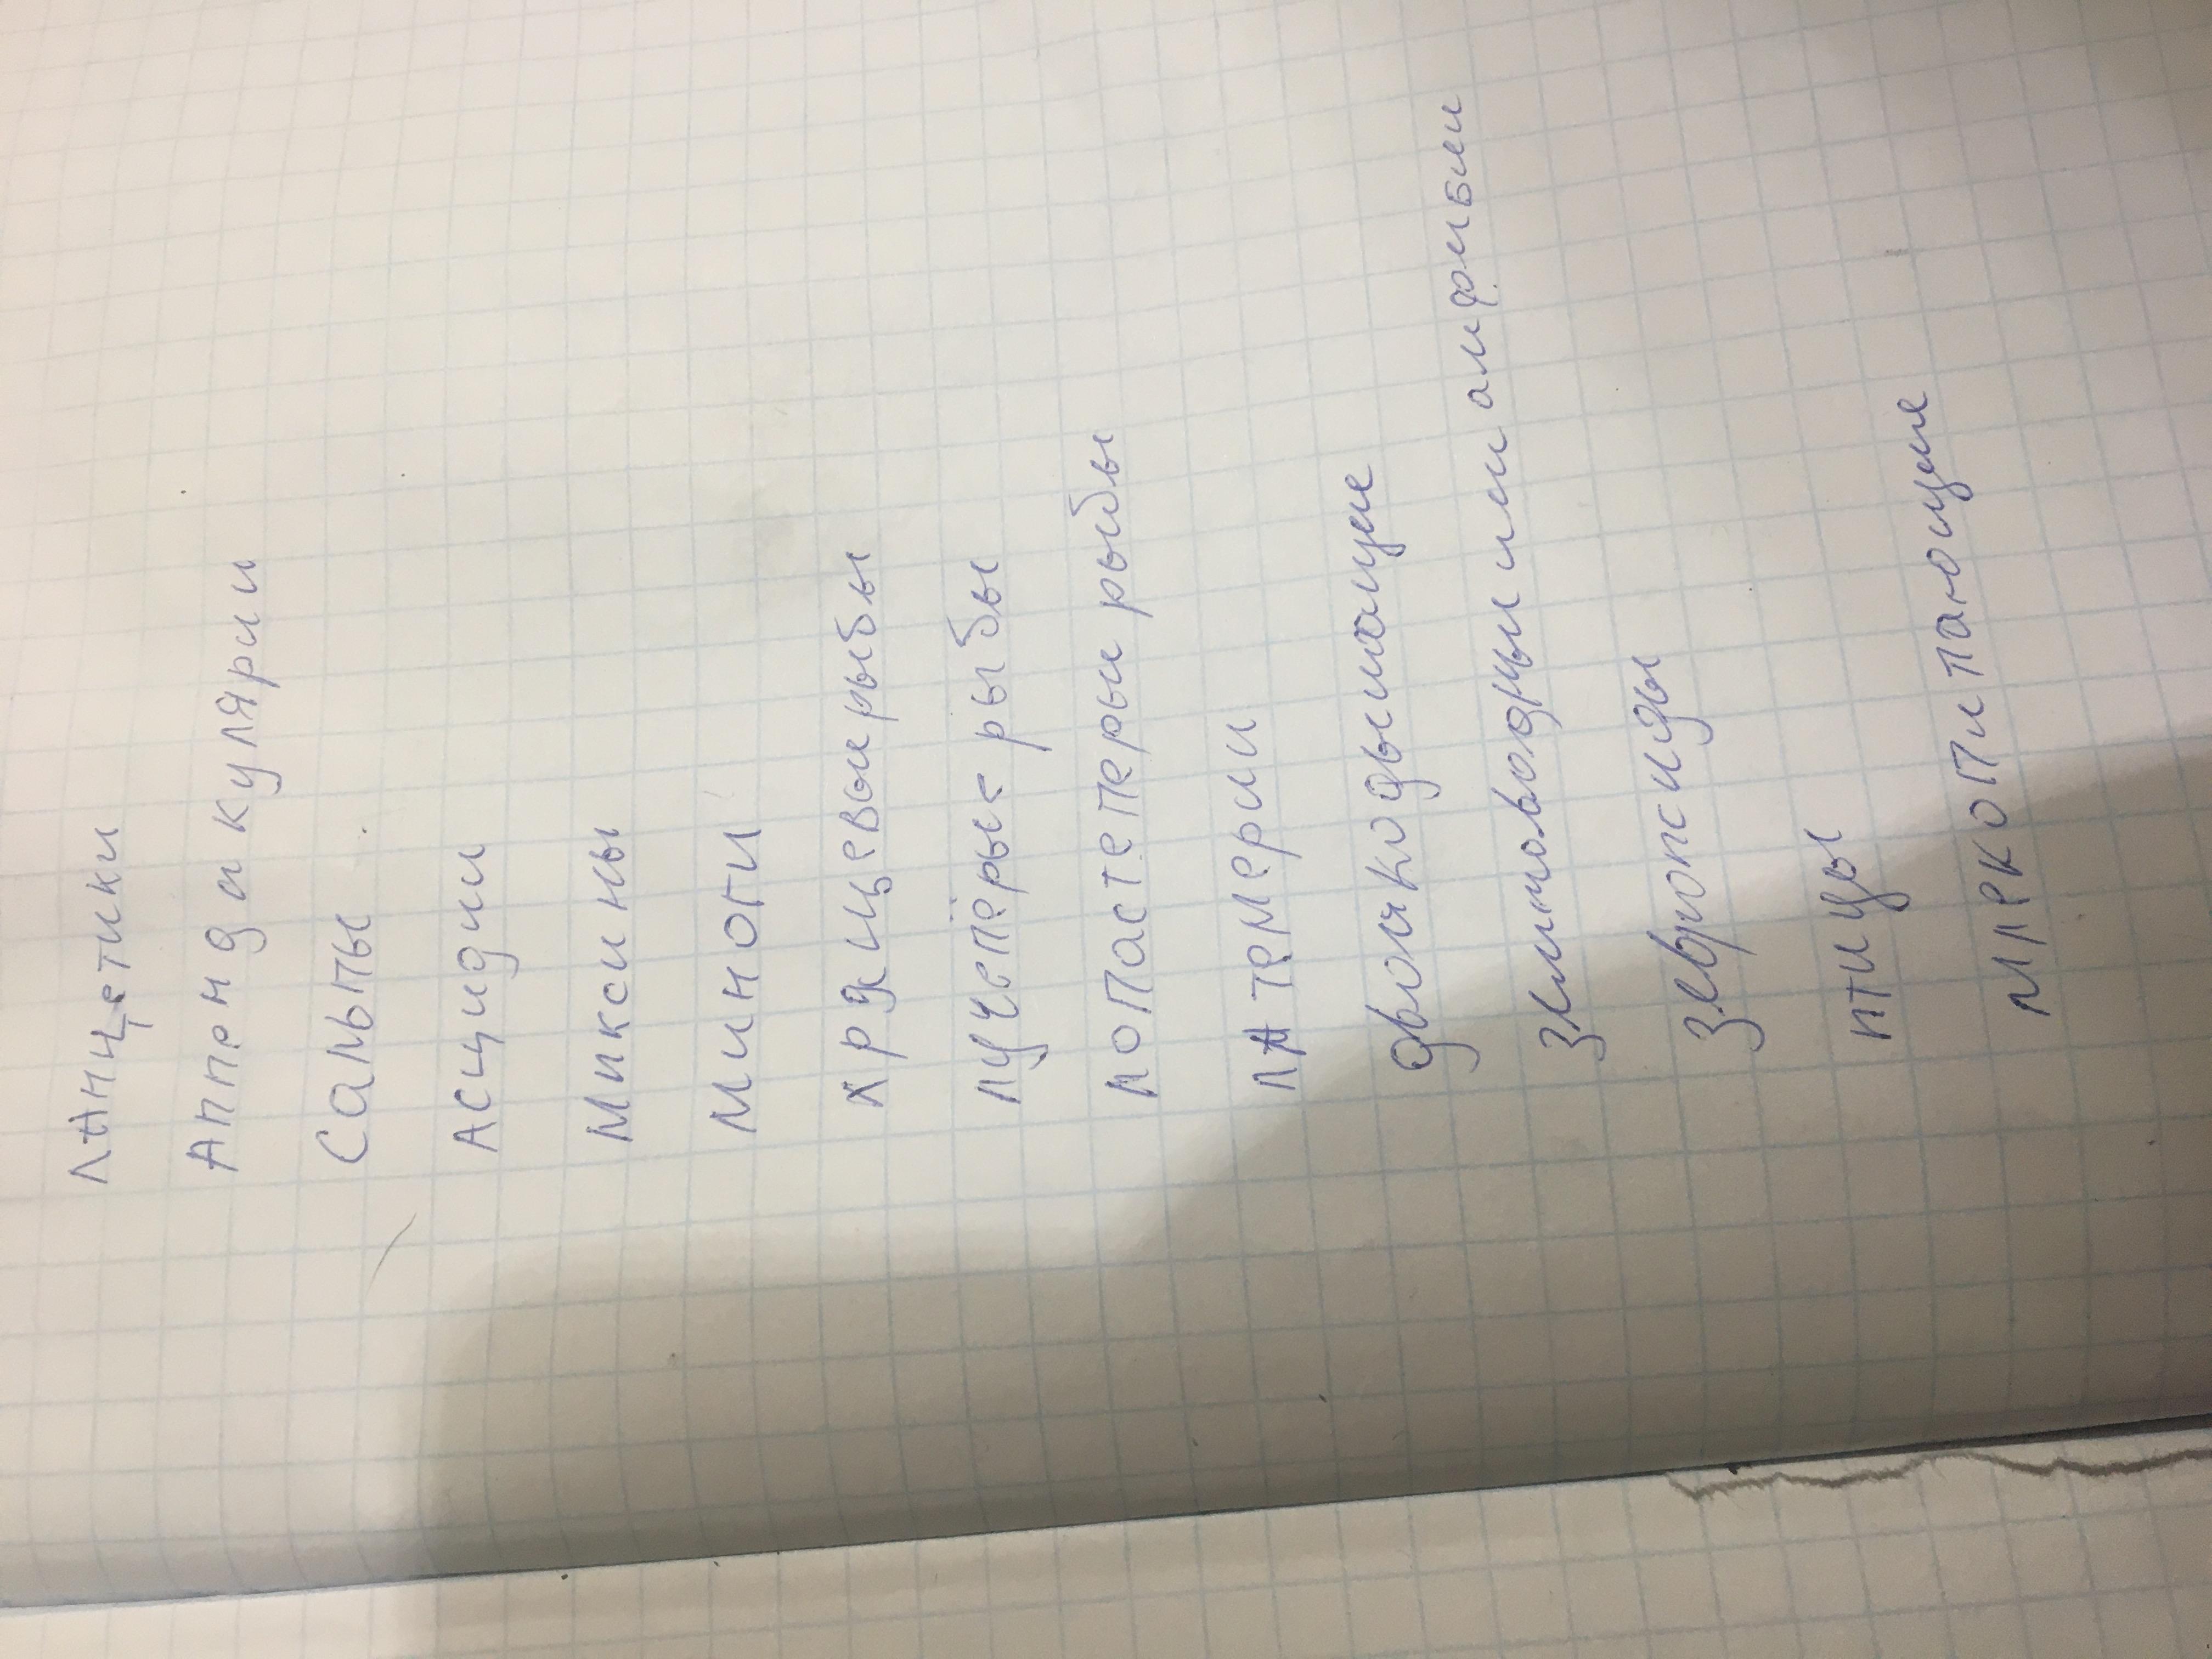 Ланцетики
Аппендикулярии
Сальпы
Асцидии
Миксины
Миноги
хрящевые рыбы
лучепёрые рыбы
лопастеперые рыбы
латемерии
двоякодышащие
земноводные или амфибии
завропсиды
птицы
млекопитающие